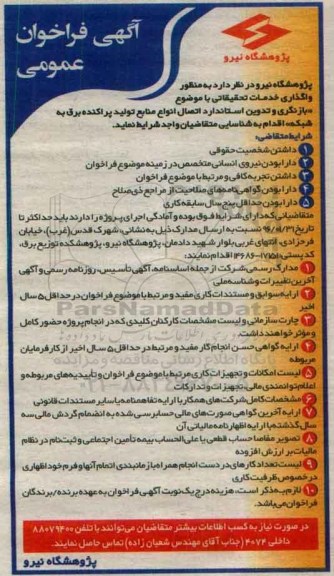 آگهی فراخوان
عمومی
پژوهشگاه نیرو
پژوهشگاه نیرو در نظر دارد به منظور
واگذاری خدمات تحقیقاتی با موضوع
«بازنگری و تدوین استاندارد اتصال انواع منابع تولید پراکنده برق به
شبکه» اقدام به شناسایی متقاضیان واجد شرایط نماید.
شرایط متقاضی:
۱ داشتن شخصیت حقوقی
۲ دارا بودن نیروی انسانی متخصص در زمینه موضوع فراخوان
۳ داشتن تجربه کافی و مرتبط با موضوع فراخوان
۴ دارا بودن گواهی نامه‌های صلاحیت از مراجع ذی‌صلاح
۵ دارا بودن حداقل پنج سال سابقه کاری
متقاضیانی که دارای شرایط فوق بوده و آمادگی اجرای پروژه را دارند باید حداکثر تا
تاریخ ۹۶/۰۸/۳۱ نسبت به ارسال مدارک ذیل به نشانی: شهرک قدس (غرب)، خیابان
فرحزادی، انتهای غربی بلوار شهید دادمان، پژوهشگاه نیرو، پژوهشکده توزیع برق،
کد پستی: ۱۷۱۵۱-۱۴۶۸۶ اقدام نمایند:
۱ مدارک رسمی شرکت از جمله اساسنامه، آگهی تأسیس، روزنامه رسمی و آگهی
آخرین تغییرات و شناسه ملی
۲ ارایه سوابق و مستندات کاری مفید و مرتبط با موضوع فراخوان در حداقل ۵ سال
اخیر
۳ چارت سازمانی و لیست مشخصات کارکنان کلیدی که در انجام پروژه حضور کامل
و مؤثر خواهند داشت.
۴ ارایه گواهی حسن انجام کار مفید و مرتبط در حداقل ۵ سال اخیر از کارفرمایان
مربوطه
۵ لیست امکانات و تجهیزات کاری مرتبط با موضوع فراخوان و تأییدیه‌های مربوطه و
اعلام توانمندی مالی، تجهیزات و تدارکات
۶ مشخصات کامل شرکت‌های همکار با ارایه تفاهم‌نامه یا سایر مستندات قانونی
۷ ارایه آخرین گواهی صورت‌های مالی حسابرسی شده به انضمام گردش مالی سه
سال گذشته با ارایه اظهارنامه مالیاتی آن
۸ تصویر مفاصا حساب قطعی یا علی‌الحساب بیمه تأمین اجتماعی و ثبت‌نام در نظام
مالیات بر ارزش افزوده
۹ لیست تعداد کارهای در دست انجام همراه با زمانبندی اتمام آنها و فرم خوداظهاری
در خصوص ظرفیت کاری
۱۰ لازم به ذکر است، هزینه درج یک نوبت آگهی فراخوان به عهده برنده/برندگان
فراخوان می‌باشد.
در صورت نیاز به کسب اطلاعات بیشتر متقاضیان می‌توانند با تلفن ۸۸۰۷۹۴۰۰
داخلی ۴۰۷۴ (جناب آقای مهندس شعبان زاده) تماس حاصل نمایند.
پژوهشگاه نیرو
ParsNamadData